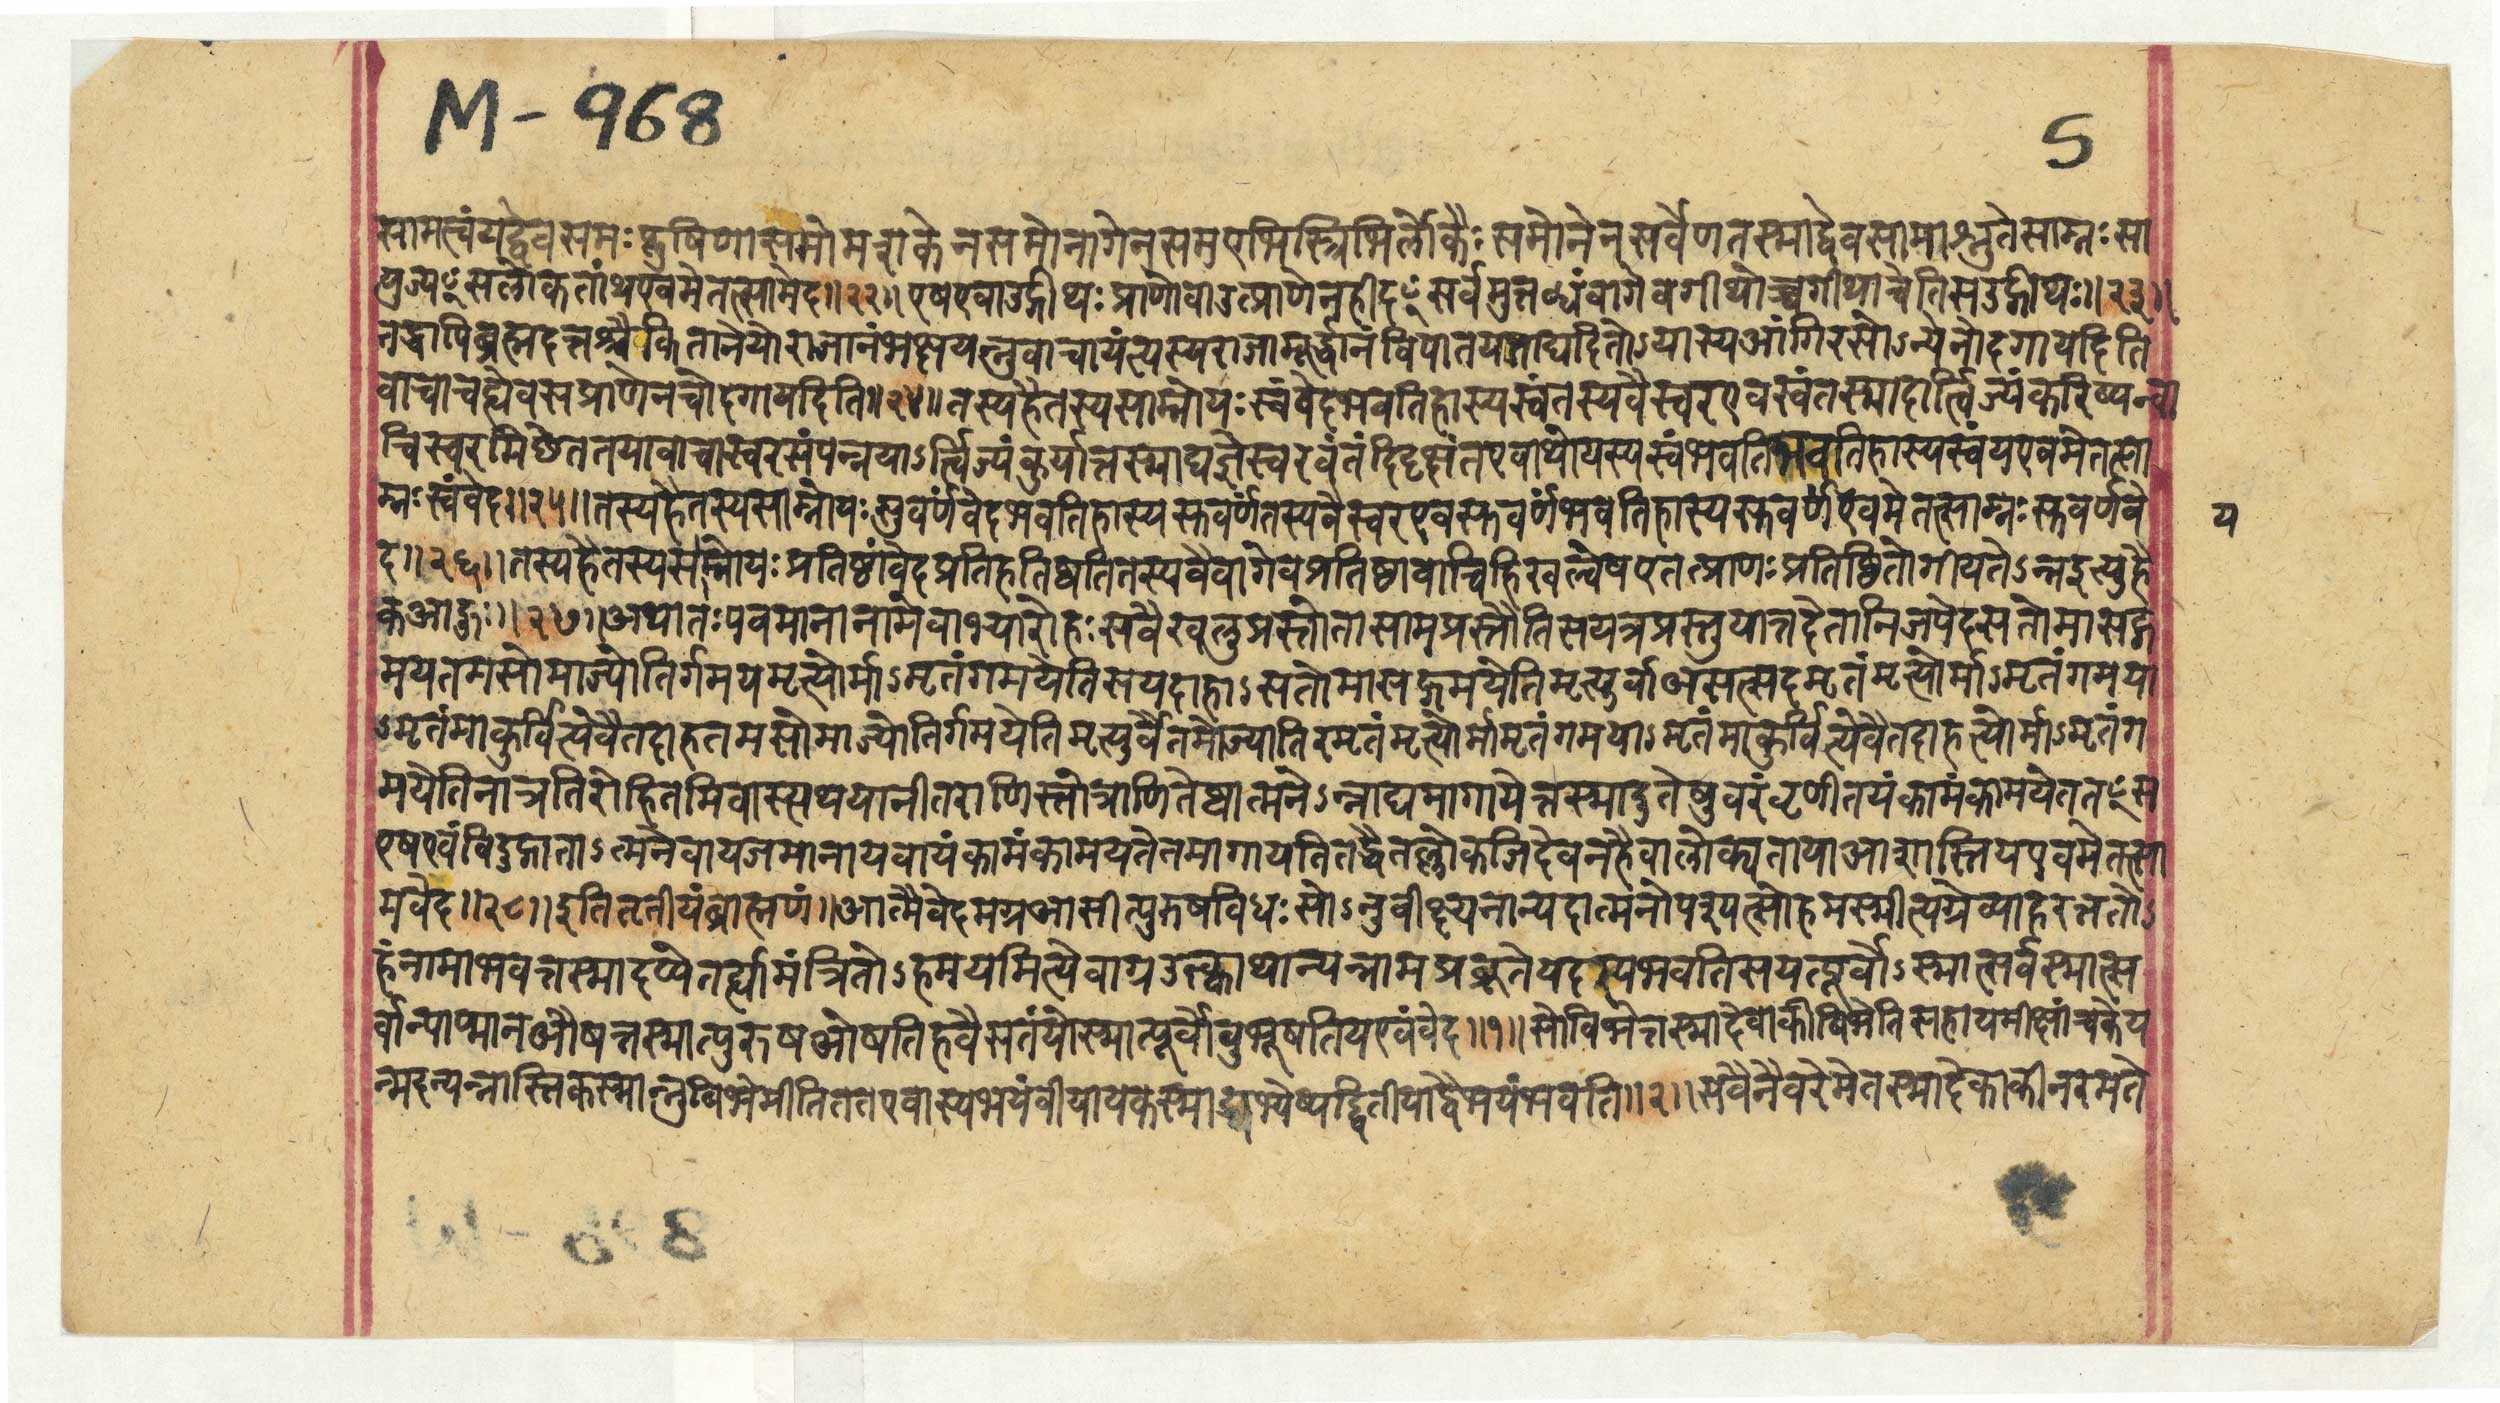 M - 968
5
सामत्वंयद्वेवसमःप्लुषिणासमोमशकेनसमोनागेनसमएभिस्त्रिभिर्लोकैःसमोनेनसर्वेणतस्माद्वेवसामाश्नुतेसाम्नःसा
युज्यꣳसलोकतांयएवमेतत्सामवेद॥२२॥एषएवाउद्गीथःप्राणोवाउत्प्राणेनहीदꣳसर्वमुत्तब्धंवागेवगीथोच्चगीथाचेतिसउद्गीथः॥२३॥
तद्धापिब्रह्मदत्तश्चैकितानेयोराजानंभक्षयन्नुवाचायंत्यस्यराजामूर्द्धानंविपातयताद्यदितोऽयास्यआंगिरसोऽन्येनोदगायदिति
वाचाचह्येवसप्राणेनचोदगायदिति॥२४॥तस्यहैतस्यसाम्नोयःस्वंवेदभवतिहास्यस्वंतस्यवैस्वरएवस्वंतस्मादार्त्विज्यंकरिष्यन्वा
चिस्वरमिछेततयावाचास्वरसंपन्नयाऽर्त्विज्यंकुर्यात्तस्माद्यज्ञेस्वरवंतंदिदृक्षंतएवाथोयस्यस्वंभवतिभवतिहास्यस्वंयएवमेतत्सा
म्नःस्वंवेद॥२५॥तस्यहैतस्यसाम्नोयःसुवर्णंवेदभवतिहास्यसुवर्णंतस्यवैस्वरएवसुवर्णंभवतिहास्यसुवर्णंएवमेतत्साम्नःसुवर्णंवे
य
द॥२६॥तस्यहैतस्यसाम्नोयःप्रतिष्ठांवेदप्रतिहतिष्ठतितस्यवैवागेवप्रतिष्ठावाचिहिखल्वेषएतत्प्राणःप्रतिष्ठितोगीयतेऽन्नइत्युहै
कआहुः॥२७॥अथातःपवमानानामेवाभ्यारोहःसवैखलुप्रस्तोतासामप्रस्तौतिसयत्रप्रस्तुयात्तदेतानिजपेदसतोमासद्ग
मयतमसोमाज्योतिर्गमयमृत्योर्माऽमृतंगमयेतिसयदाहाऽसतोमासद्गमयेतिमृत्युर्वाअसत्सदमृतंमृत्योर्माऽमृतंगमया
ऽमृतंमाकुर्वित्येवैतदाहतमसोमाज्योतिर्गमयेतिमृत्युर्वैतमोज्योतिरमृतंमृत्योर्मामृतंगमयाऽमृतंमाकुर्वित्येवैतदाहत्योर्माऽमृतंग
मयेतिनात्रतिरोहितमिवास्त्यथयानीतराणिस्तोत्राणितेष्वात्मनेऽन्नाद्यमागायेत्तस्मादुतेषुवरंवृणीतयंकामंकामयेततꣳस
एषएवंविदुद्गाताऽत्मनेवायजमानायवायंकामंकामयतेतमागायतितद्धैतल्लोकजिदेवनहैवालोक्यतायाआशास्तियएवमेतत्सा
मवेद॥२८॥इतितृतीयंब्राह्मणं॥आत्मैवेदमग्रआसीत्पुरुषविधःसोऽनुवीक्ष्यनान्यदात्मनोपश्यत्सोहमस्मीत्यग्रेव्याहरत्ततोऽ
हंनामाभवत्तस्मादप्येतर्ह्यामंत्रितोऽहमयमित्येवाग्रउक्त्वाथान्यन्नामप्रब्रूतेयदस्यभवतिसयत्पूर्वोऽस्मात्सर्वस्मात्स
र्वान्पाप्मानऔषत्तस्मात्पुरुषओषतिहवैसतंयोस्मात्पूर्वोबुभूषतियएवंवेद॥१॥सोबिभेत्तस्मादेकाकीबिभेतिसहायमीक्षांचक्रेय
न्मदन्यन्नास्तिकस्मान्नुबिभेमीतिततएवास्यभयंवीयायकस्माद्ध्यभेष्यद्द्वितीयाद्वैभयंभवति॥२॥सवैनैवरेमेतस्मादेकाकीनरमते